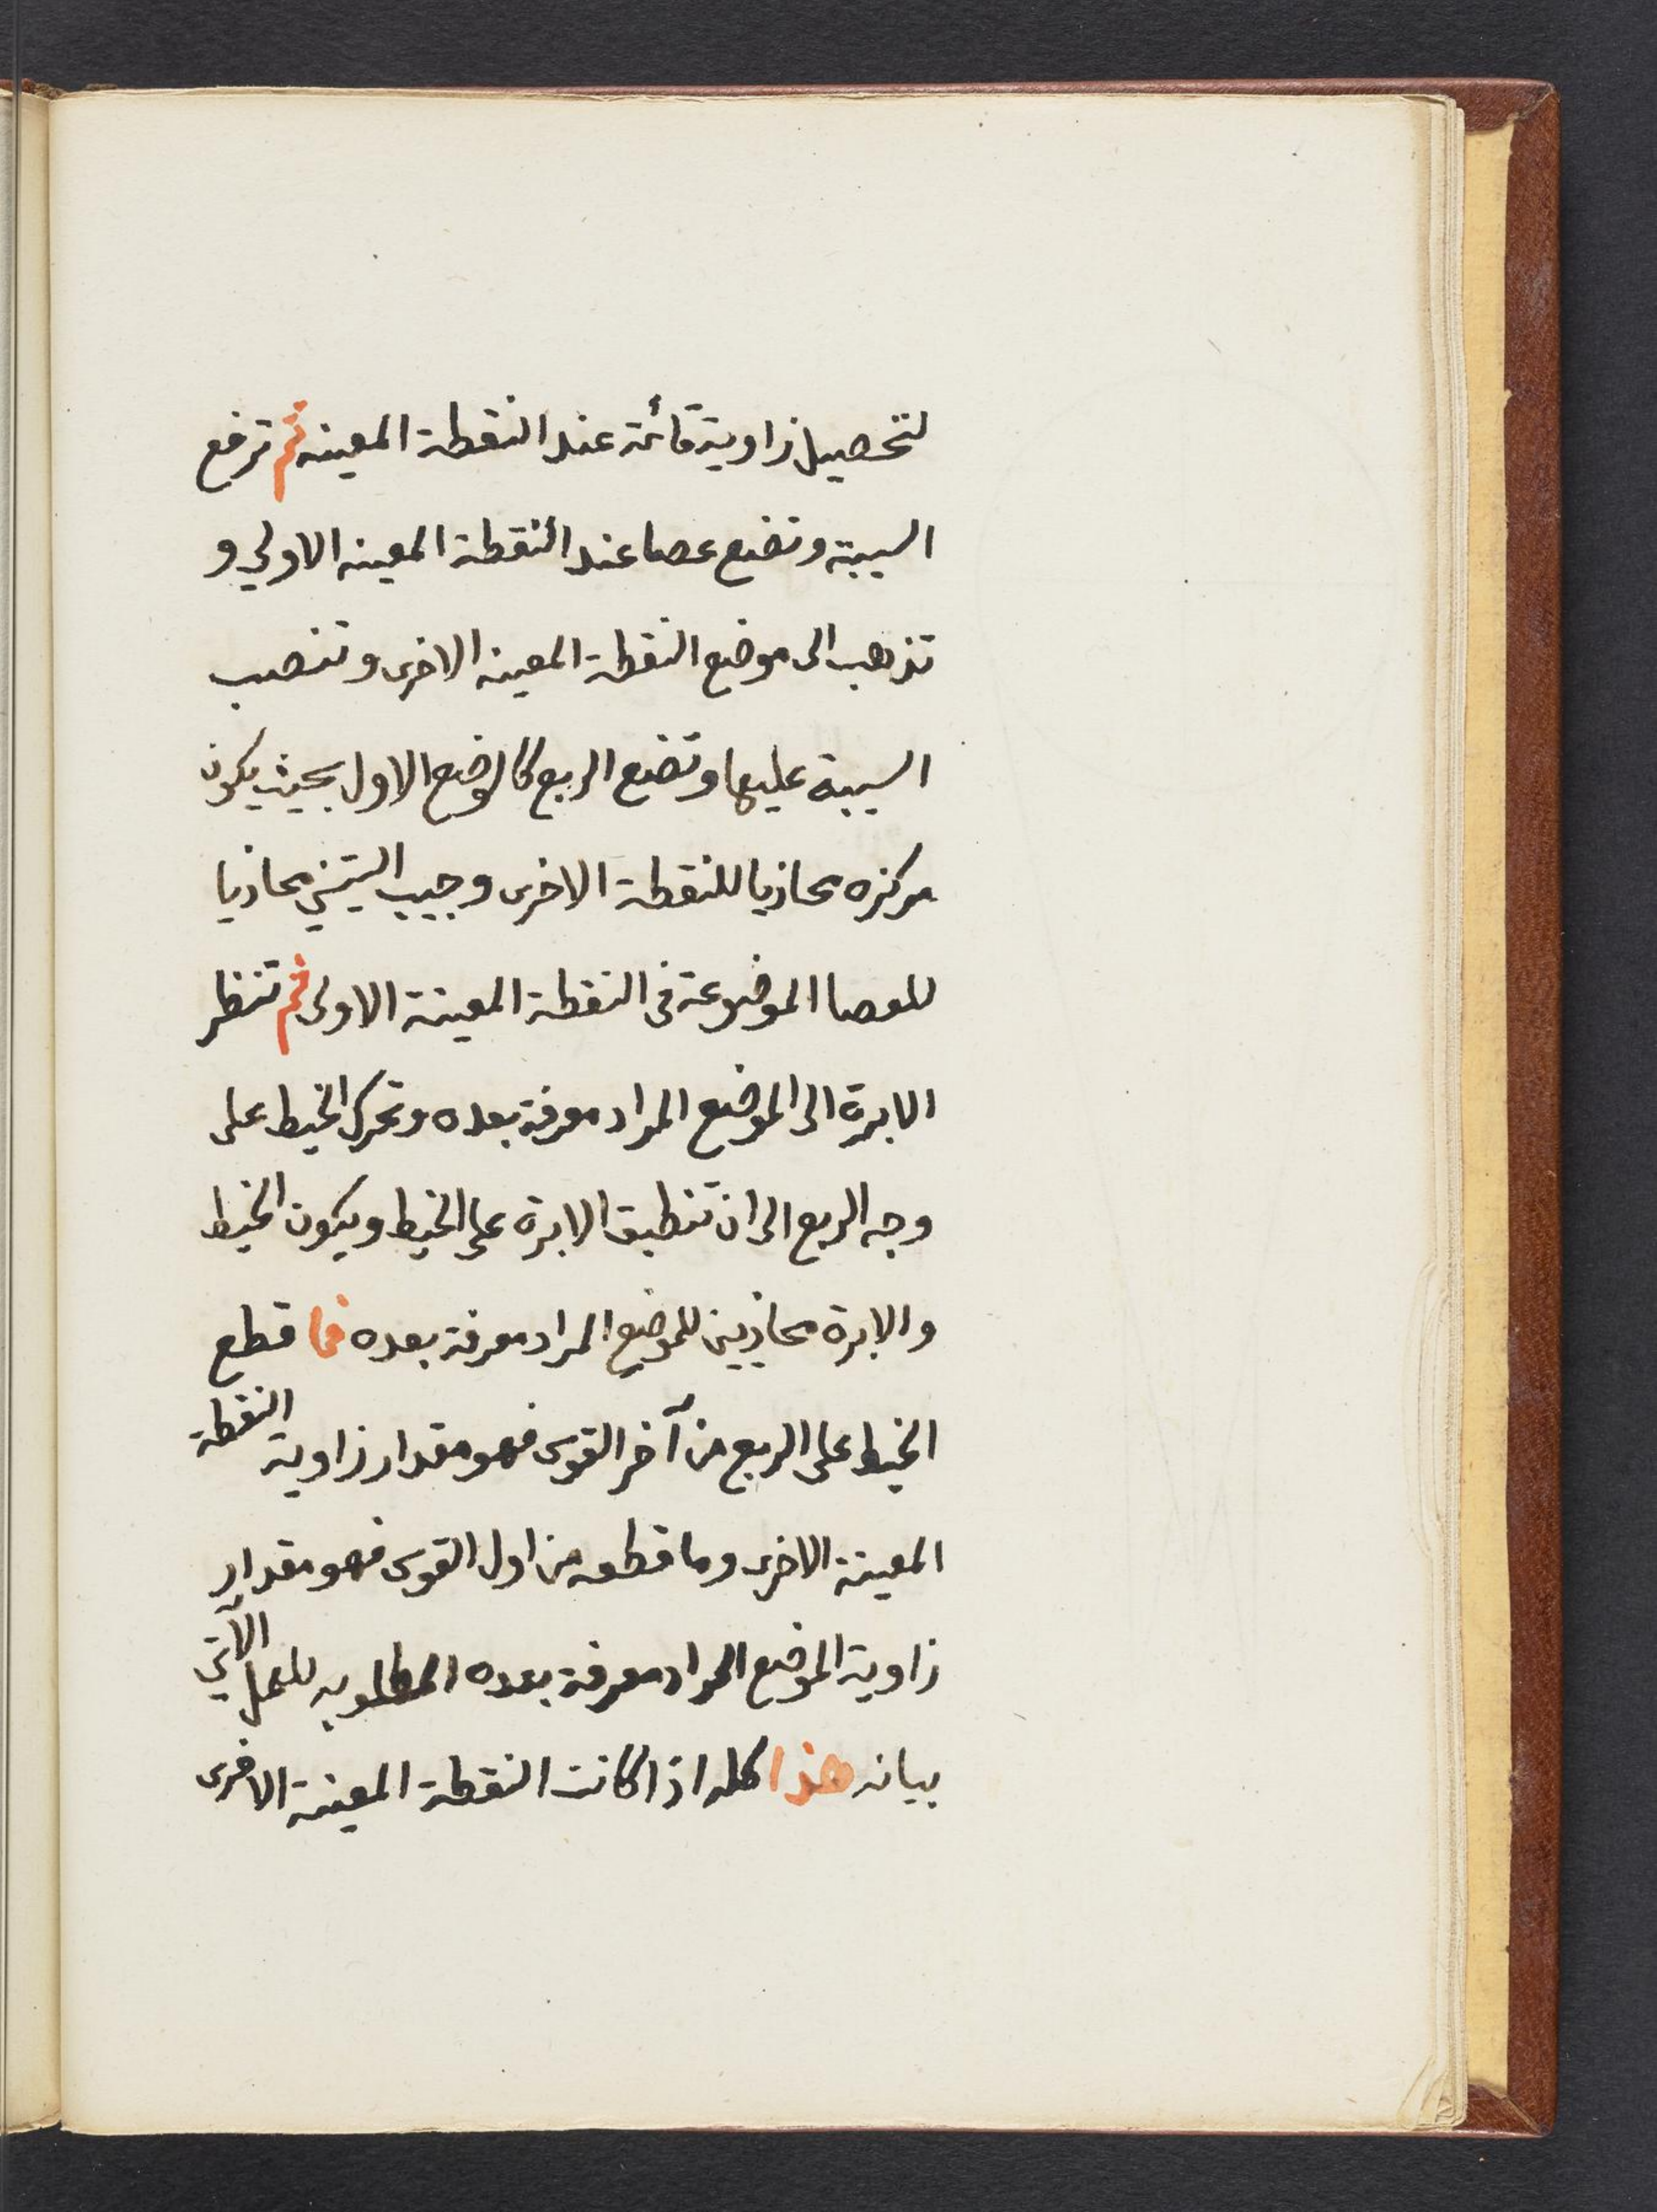 لتحصيل زاوية قائمة عند النقطة المعينه ثم ترفع
السيبة وتضع عصا عند النقطة المعينه الاولي و
تذهب الى موضع النقطة المعينه الاخرى وتنصب
السيبة عليها وتضع الربع كالوضع الاول بحيث يكون
مركزه محاذيا للنقطة الاخرى وجيب الستيني محاذيا
للعصا الموضوعة فى النقطة المعينة الاولى ثم تنظر
الابرة الى الموضع المراد معرفة بعده وتحرك الخيط على
وجه الربع الى ان تنطبق الابرة على الخيط ويكون الخيط
والابرة محاذيين للموضع المراد معرفة بعده فما قطع
الخيط على الربع من آخر القوس فهو مقدار زاوية النقطة
المعينة الاخرى وما قطعه من اول القوس فهو مقدار
زاوية الموضع المراد معرفة بعده المطلوبه للعمل الآتي
بيانه هذا كله اذا كانت النقطة المعينة الاخرى